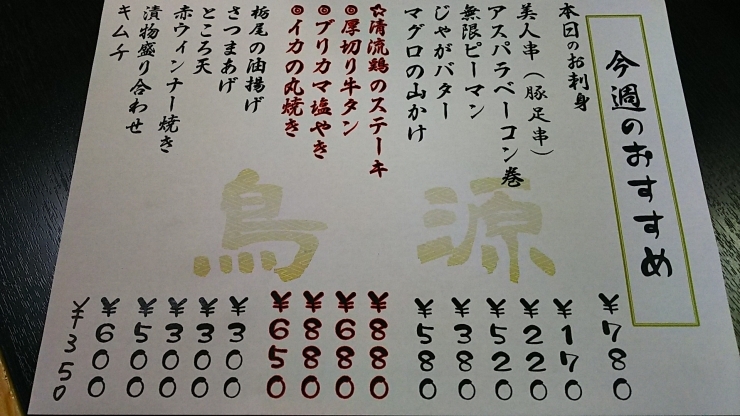 今週のおすすめ
本日のお刺身 ¥780
美人串(豚足串) ¥170
アスパラベーコン巻 ¥220
無限ピーマン ¥520
じゃがバター ¥380
マグロの山かけ ¥580
☆清流鶏のステーキ ¥880
◎厚切り牛タン ¥680
◎ブリカマ塩やき ¥880
◎イカの丸焼き ¥650
栃尾の油揚げ ¥300
さつまあげ ¥300
ところ天 ¥300
赤ウィンナー焼き ¥500
漬物盛り合わせ ¥600
キムチ ¥350
鳥源